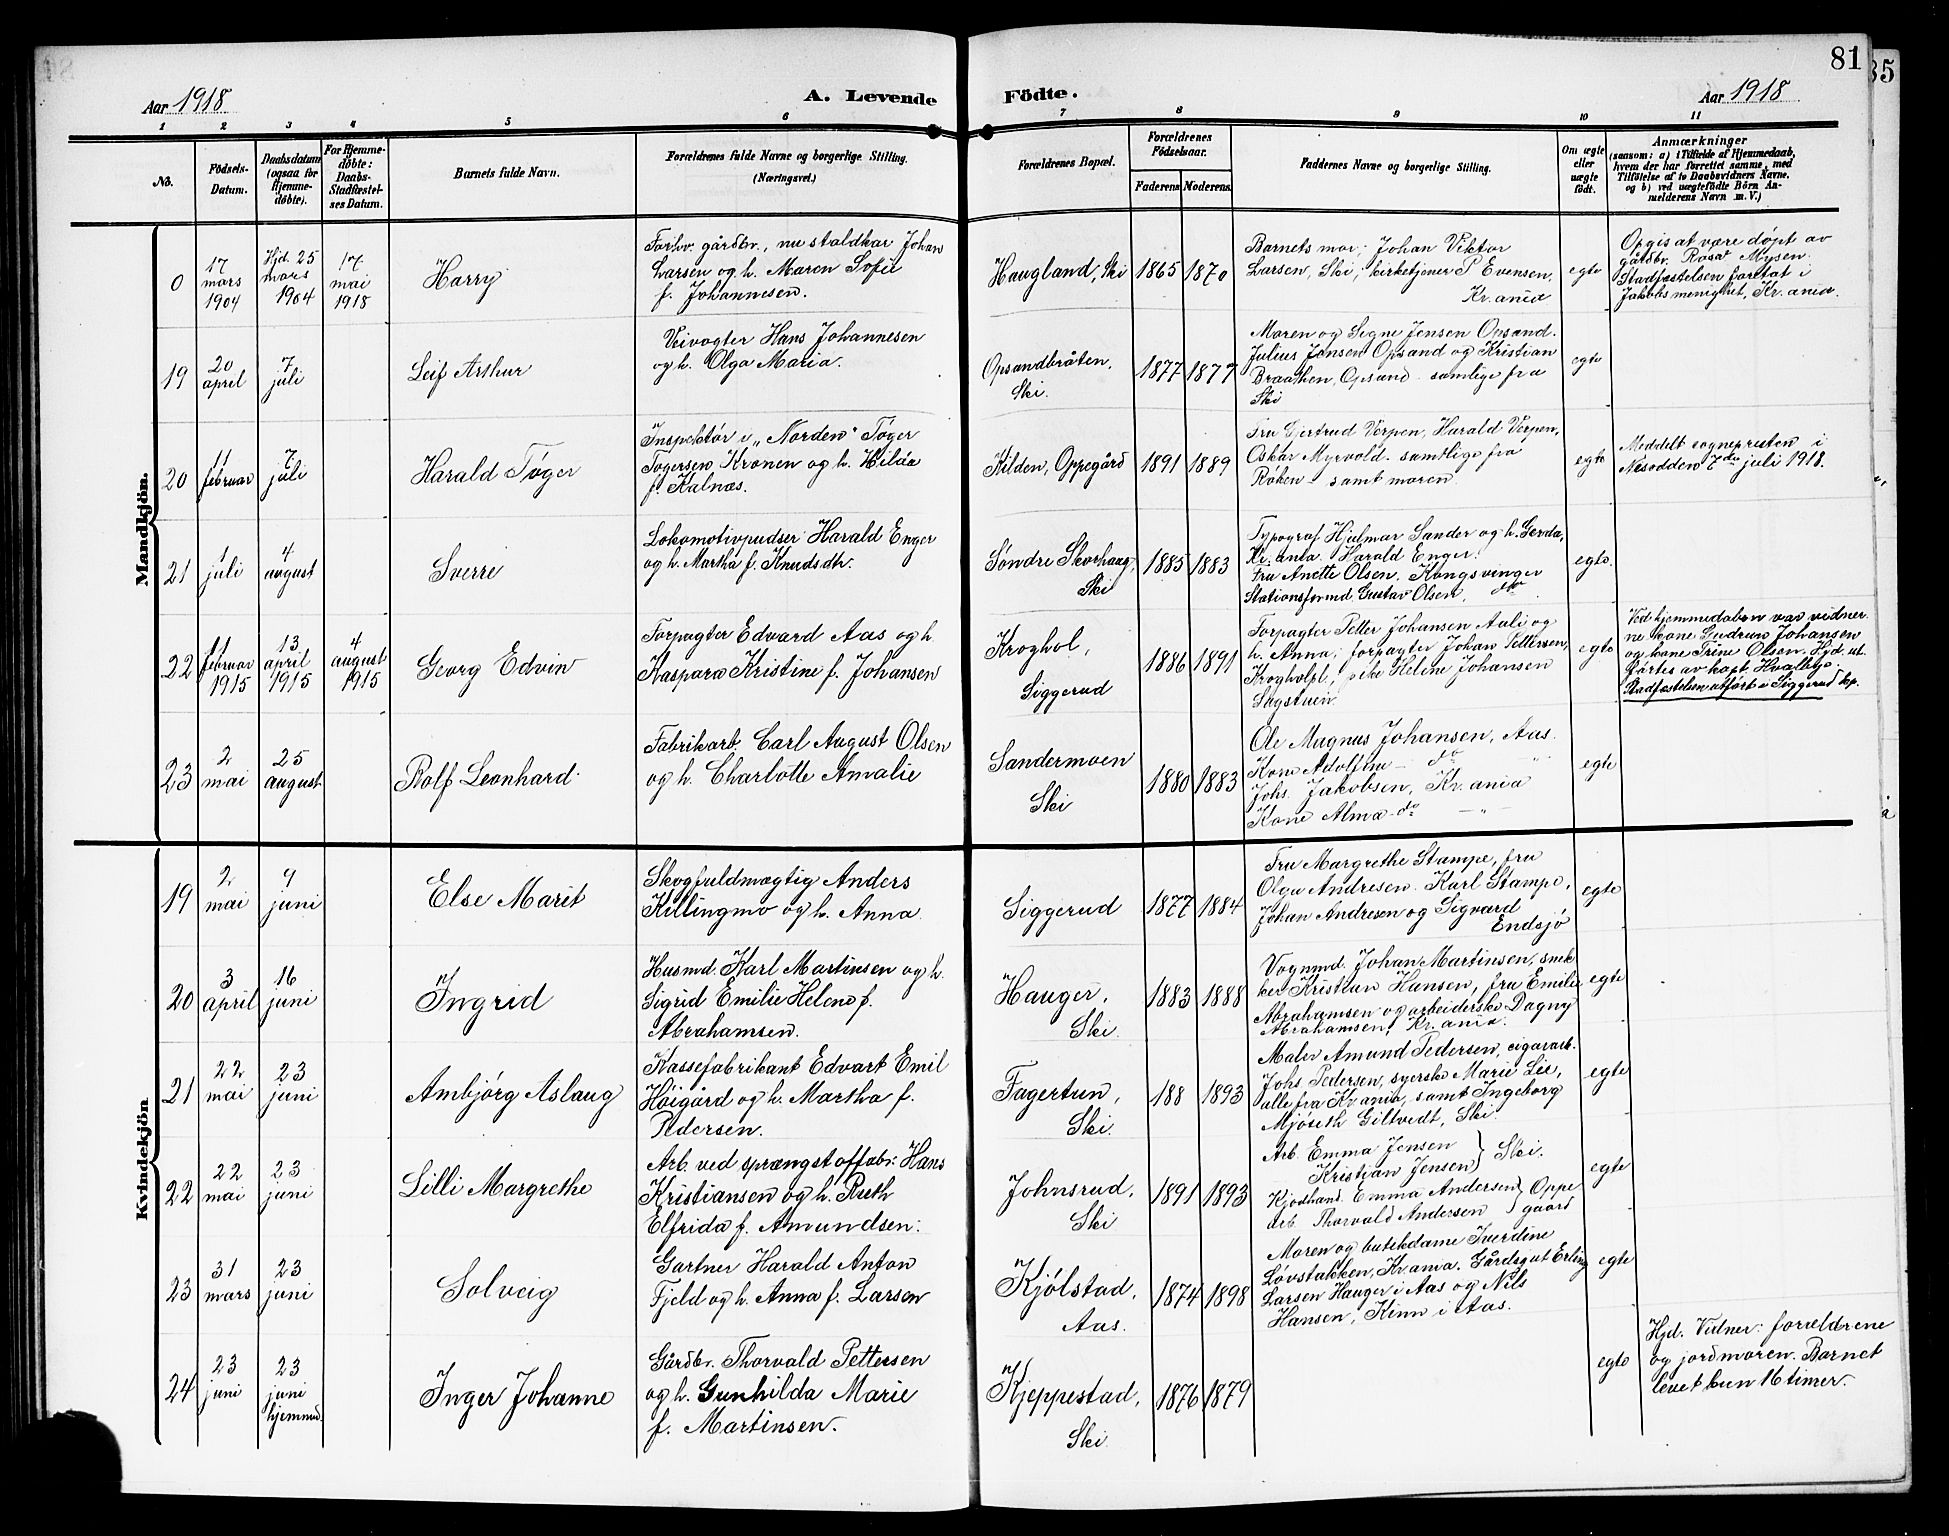 81
85
Aar 1918
A. Levende Födte.
Aar 1918
1 2 3 4 5 6 7 8 9 10 11
No.
Födsels-
Datum.
Daabsdatum
(ogsaa for
Hjemme-
döbte).
For Hjemme-
döbte:
Daabs-
Stadfæstel-
ses Datum.
Barnets fulde Navn.
Forældrenes fulde Navne og borgerlige Stilling.
(Næringsvei.)
Forældrenes Bopæl.
Forældrenes
Födselsaar.
Faderens
Moderens
Faddernes Navne og borgerlige Stilling.
Om ægte
eller
uægte
födt.
Anmærkninger
(saasom: a) i Tilfælde af Hjemmedaab,
hvem der har forrettet samme, med
Tilföielse af to Daabsvidners Navne.
og b) ved uægtefödte Börn An-
melderens Navn m.V.)
Mandkjön.
0
17
mars
1904
Hjd. 25
mars
1904
17
mai
1918
Harry
Forhv. gårdbr., nu staldkar Johan
Larsen og h. Maren Sofie
f. Johannesen.
Haugland, Ski
1865
1870
Barnets mor; Johan Viktor
Larsen, Ski; kirketjener P Evensen,
Kr.ania
egte
Opgis at være døpt av
gårdbr. Mysen.
Stadfæstelsen foretat i
Jakobs menighet, Kr.ania.
19
20
april
7
juli
Leif Arthur
Veivogter Hans Johannesen
og h. Olga Maria.
Opsandbråten,
Ski.
1877
1877
Moren og Signe Jensen Opsand.
Julius Jensen Opsand og Kristian
Braathen, Opsand - samtlige fra
Ski
egte
20
11
februar
7
juli
Harald Tøger
Inspektør i „Norden“ Tøger
Tøgersen Kronen og h. Hilda
f. Kalnæs.
Kilden, Oppegård
1891
1889
Fru Gjertrud Verpen, Harald Verpen,
Oskar Myrvold - samtlige fra
Røken - samt moren
egte
Meddelt sognepresten i
Nesodden 7de juli 1918.
21
1
juli
4
august
Sverre
Lokomotivpudser Harald Enger
og h. Martha f. Knudsdtr.
Søndre Skorhaug,
Ski
1885
1883
Typograf Hjalmar Sander og h. Gerda,
Kr.ania. Harald Enger.
Fru Anette Olsen, Kongsvinger
Stationsformd. Gustav Olsen, do
egte.
22
11
februar
1915
13
april
1915
4
august
1915
Georg Edvin
Forpagter Edvard Aas og h.
Kaspara Kristine f. Johansen
Kroghol,
Siggerud
1886
1891
Forpagter Petter Johansen Aali og
h. Anna; forpagter Johan Pettersen,
Krogholpl., pike Helene Johansen
Sagstuen.
egte
Ved hjemmedaben var vidner-
ne kone Gudrun Johansen
og kone Trine Olsen. Hjd. ut-
førtes av kapt. Hvalbye.
Stadfæstelsen utført i Siggerud kp.
23
2
mai
25
august
Rolf Leonhard.
Fabrikarb. Carl August Olsen
og h. Charlotte Amalie
Sandermoen
Ski
1880
1883
Ole Magnus Johansen, Aas.
Kone Adolfine - do - „ -
Johs. Jakobsen, Kr.ania
Kone Alma - do - „ -
egte
Kvindekjön
19
2
mai
9
juni
Else Marit
Skogfuldmægtig Anders
Killingmo og h. Anna
Siggerud
1877
1884
Fru Margrethe Stampe, fru
Olga Andresen. Karl Stampe,
Johan Andresen og Sigvard
Endsjø
egte
20
3
april
16
juni
Ingrid
Husmd. Karl Martinsen og h.
Sigrid Emilie Helene f.
Abrahamsen.
Hauger,
Ski.
1883
1888
Vognmd. Johan Martinsen, snek-
ker Kristian Hansen, fru Emilie
Abrahamsen og arbeiderske Dagny
Abrahamsen, Kr.ania.
egte
21
22
mai
23
juni
Ambjørg Aslaug
Kassefabrikant Edvart Emil
Høigård og h. Martha f.
Pedersen.
Fagertun,
Ski.
188
1893
Maler Amund Pedersen, cigararb.
Johs Pedersen, syerske Marie Lie,
alle fra Kr.ania, samt Ingeborg
Mjøseth Giltvedt, Ski.
egte
22
22
mai
23
juni
Lilli Margrethe
Arb. ved sprængstoffabr. Hans
Kristiansen og h. Ruth
Elfrida f. Amundsen.
Johnsrud,
Ski
1891
1893
Arb. Emma Jensen
Kristian Jensen } Ski.
Kjøbhand. Emma Andersen } Oppe-
Arb. Thorvald Andersen } gaard
egte
23
31
mars
23
juni
Solveig
Gartner Harald Anton
Fjeld og h. Anna f. Larsen
Kjølstad,
Aas.
1874
1898
Moren og butikdame Iverdine
Løvstakken, Kr.ania. Gårdsgut Erling
Larsen Hauger i Aas og Nils
Hansen, Kinn i Aas.
egte
24
23
juni
23
juni
hjemmed.
Inger Johanne
Gårdbr. Thorvald Pettersen
og h. Gunhilda Marie
f. Martinsen.
Kjeppestad,
Ski.
1876
1879
egte
Hjd. Vidner: forældrene
og jordmoren. Barnet
levet kun 16 timer.